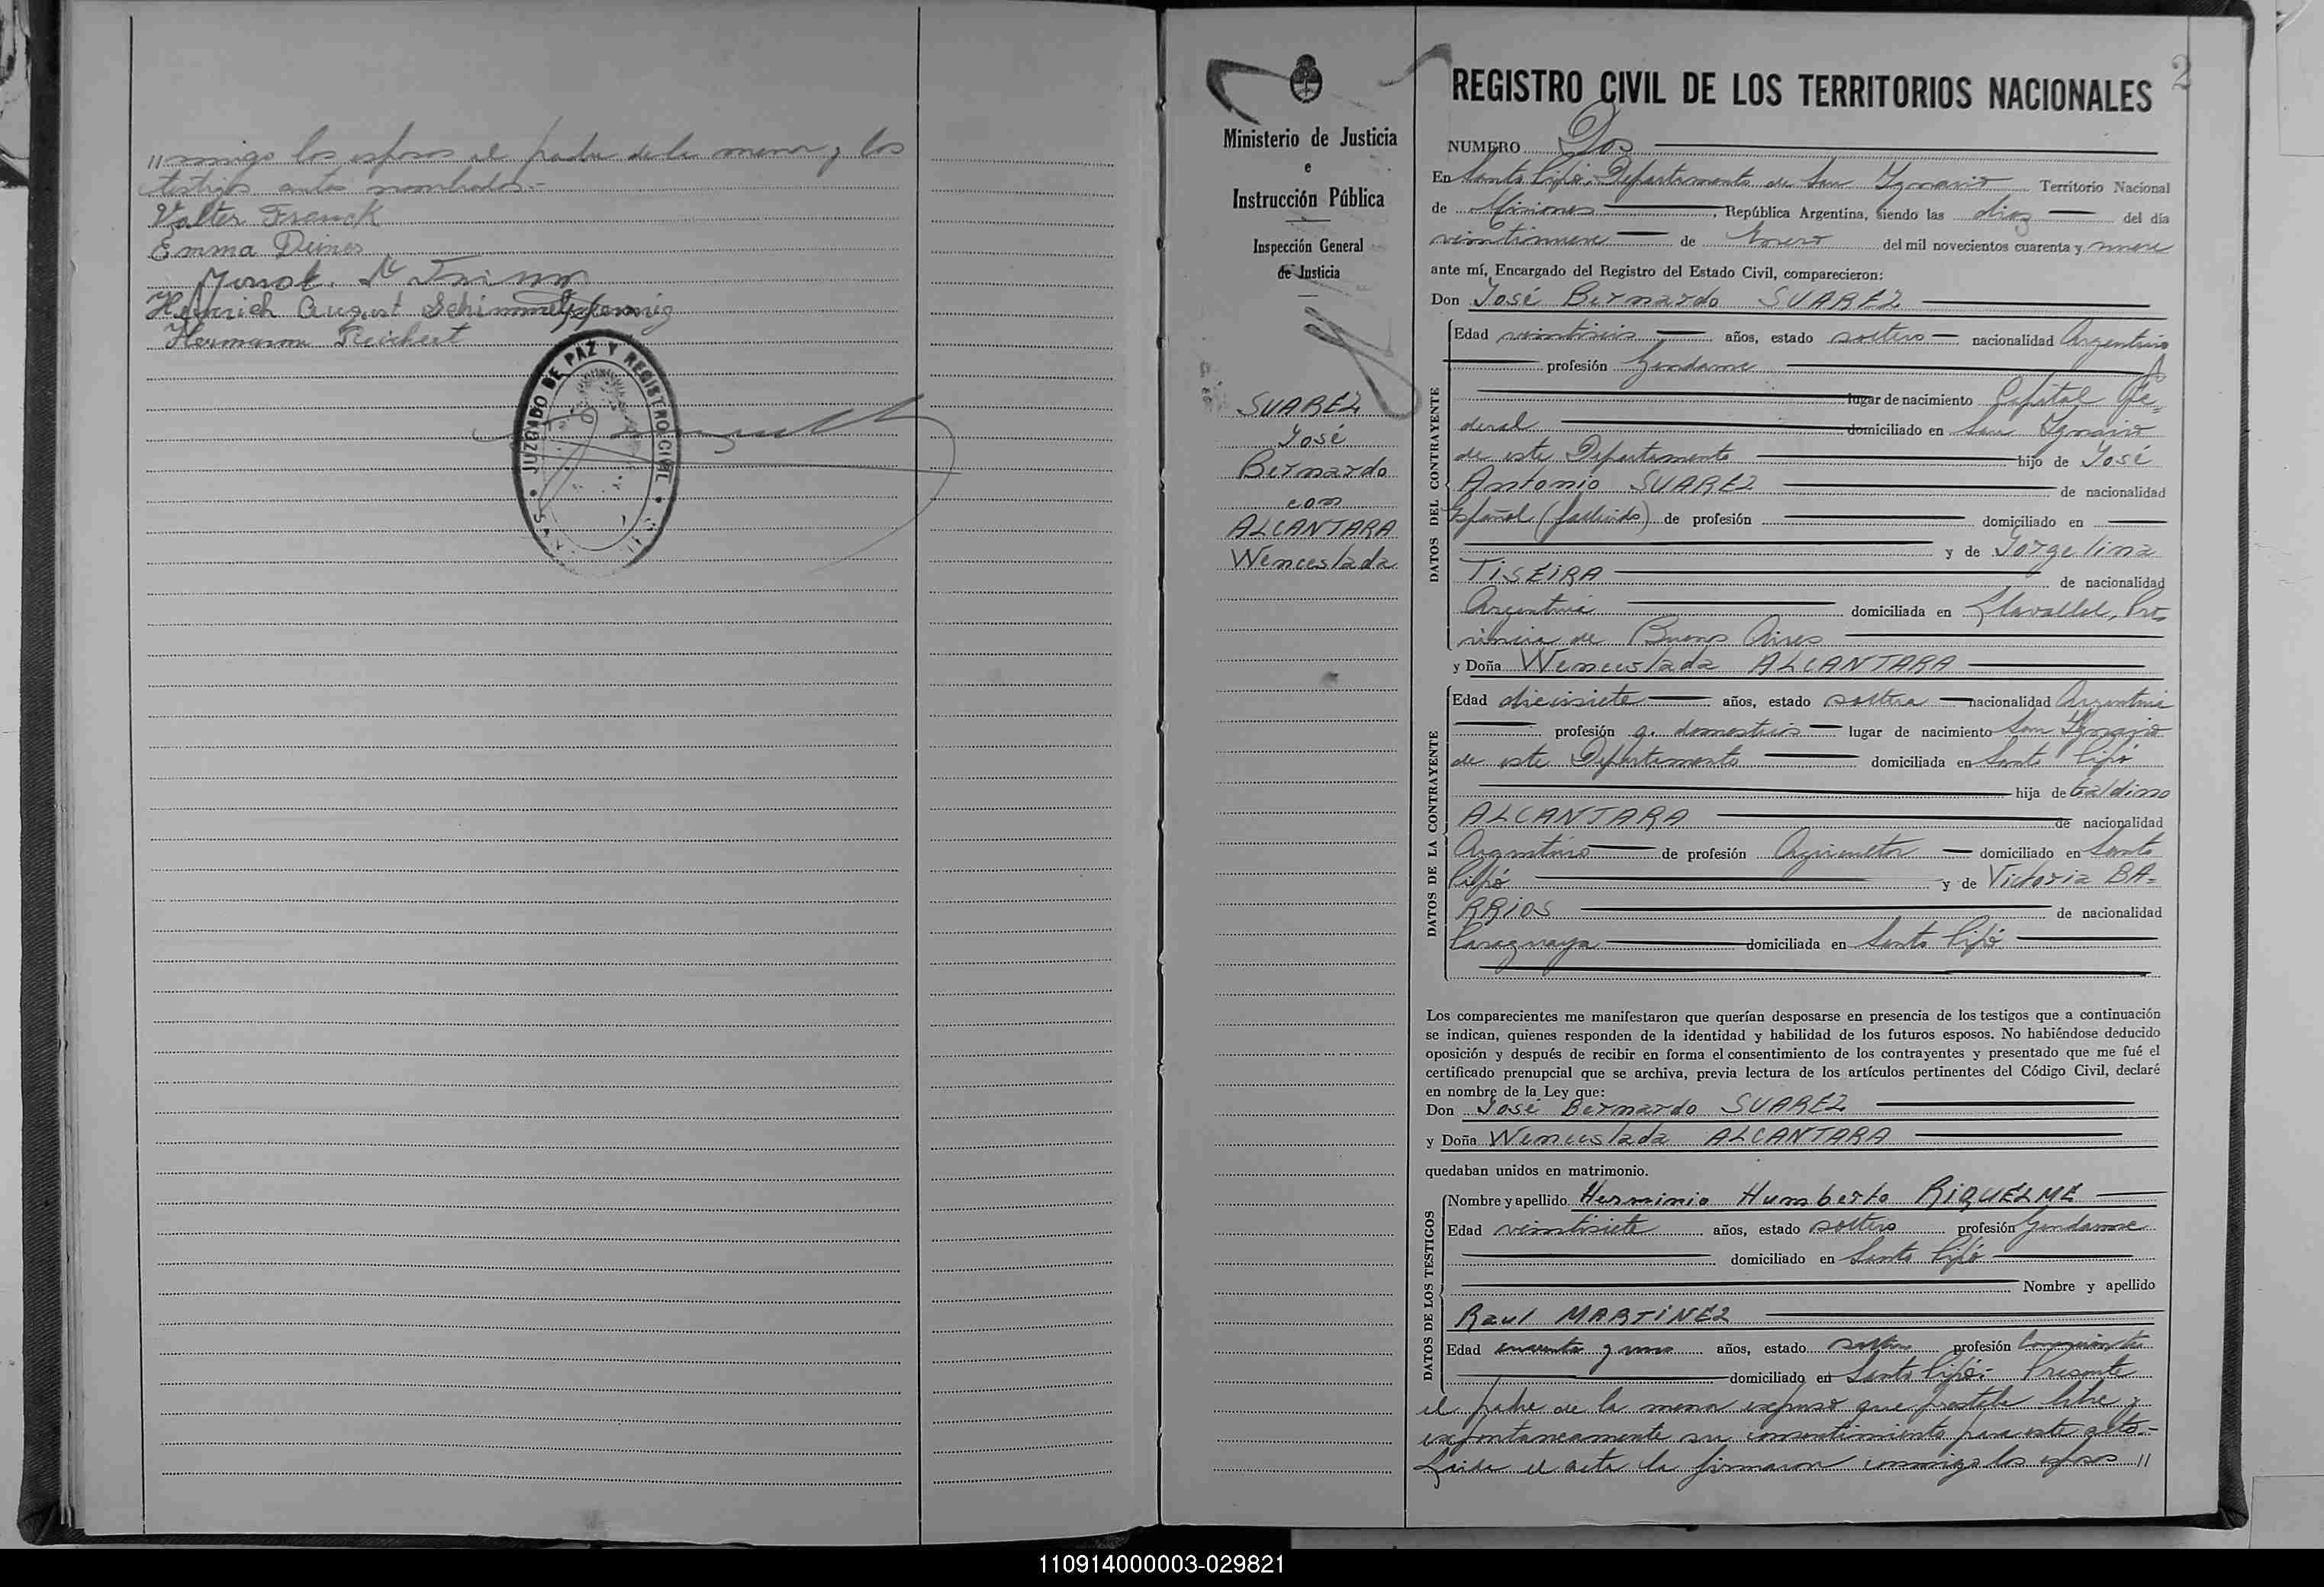 //migo los esposos el padre de la menor y los
testigos antes nombrados.-
Valter Franck
Emma Deines
Heinrich August Schimmelpfennig
Hermann Reichert
JUZGADO DE PAZ Y REGISTRO CIVIL
Ministerio de Justicia
e
Instrucción Pública
Inspección General
de Justicia
SUAREZ
José
Bernardo
con
ALCANTARA
Wenceslada
2
REGISTRO CIVIL DE LOS TERRITORIOS NACIONALES
NUMERO Dos
En Santo Pipó, Departamento de San Ignacio Territorio Nacional
de Misiones, República Argentina, siendo las diez del día
veintinueve de Enero del mil novecientos cuarenta y nueve
ante mí, Encargado del Registro del Estado Civil, comparecieron:
Don José Bernardo SUAREZ
DATOS DEL CONTRAYENTE
Edad veintiseis años, estado soltero nacionalidad Argentino
profesión Gendarme
lugar de nacimiento Capital Fe=
deral domiciliado en San Ignacio
de este Departamento hijo de José
Antonio SUAREZ de nacionalidad
Español (fallecido) de profesión domiciliado en
y de Jorgelina
TISEIRA de nacionalidad
Argentina domiciliada en Llavallol, Pro-
vincia de Buenos Aires
y Doña Wenceslada ALCANTARA
DATOS DE LA CONTRAYENTE
Edad diecisiete años, estado soltera nacionalidad Argentina
profesión q. domesticos lugar de nacimiento San Ignacio
de este Departamento domiciliada en Santo Pipó
hija de Galdino
ALCANTARA de nacionalidad
Argentino de profesión Agricultor domiciliado en Santo
Pipó y de Victoria BA=
RRIOS de nacionalidad
Paraguaya domiciliada en Santo Pipó
Los comparecientes me manifestaron que querían desposarse en presencia de los testigos que a continuación
se indican, quienes responden de la identidad y habilidad de los futuros esposos. No habiéndose deducido
oposición y después de recibir en forma el consentimiento de los contrayentes y presentado que me fué el
certificado prenupcial que se archiva, previa lectura de los artículos pertinentes del Código Civil, declaré
en nombre de la Ley que:
Don José Bernardo SUAREZ
y Doña Wenceslada ALCANTARA
quedaban unidos en matrimonio.
DATOS DE LOS TESTIGOS
Nombre y apellido Herminio Humberto RIQUELME
Edad veintisiete años, estado soltero profesión Gendarme
domiciliado en Santo Pipó
Nombre y apellido
Raul MARTINEZ
Edad cuarenta y uno años, estado soltero profesión Comerciante
domiciliado en Santo Pipó.- Presente
el padre de la menor expuso que prestaba libre y
expontaneamente su consentimiento para este acto.-
Leida el acta la firmaron conmigo los esposos //
110914000003-029821